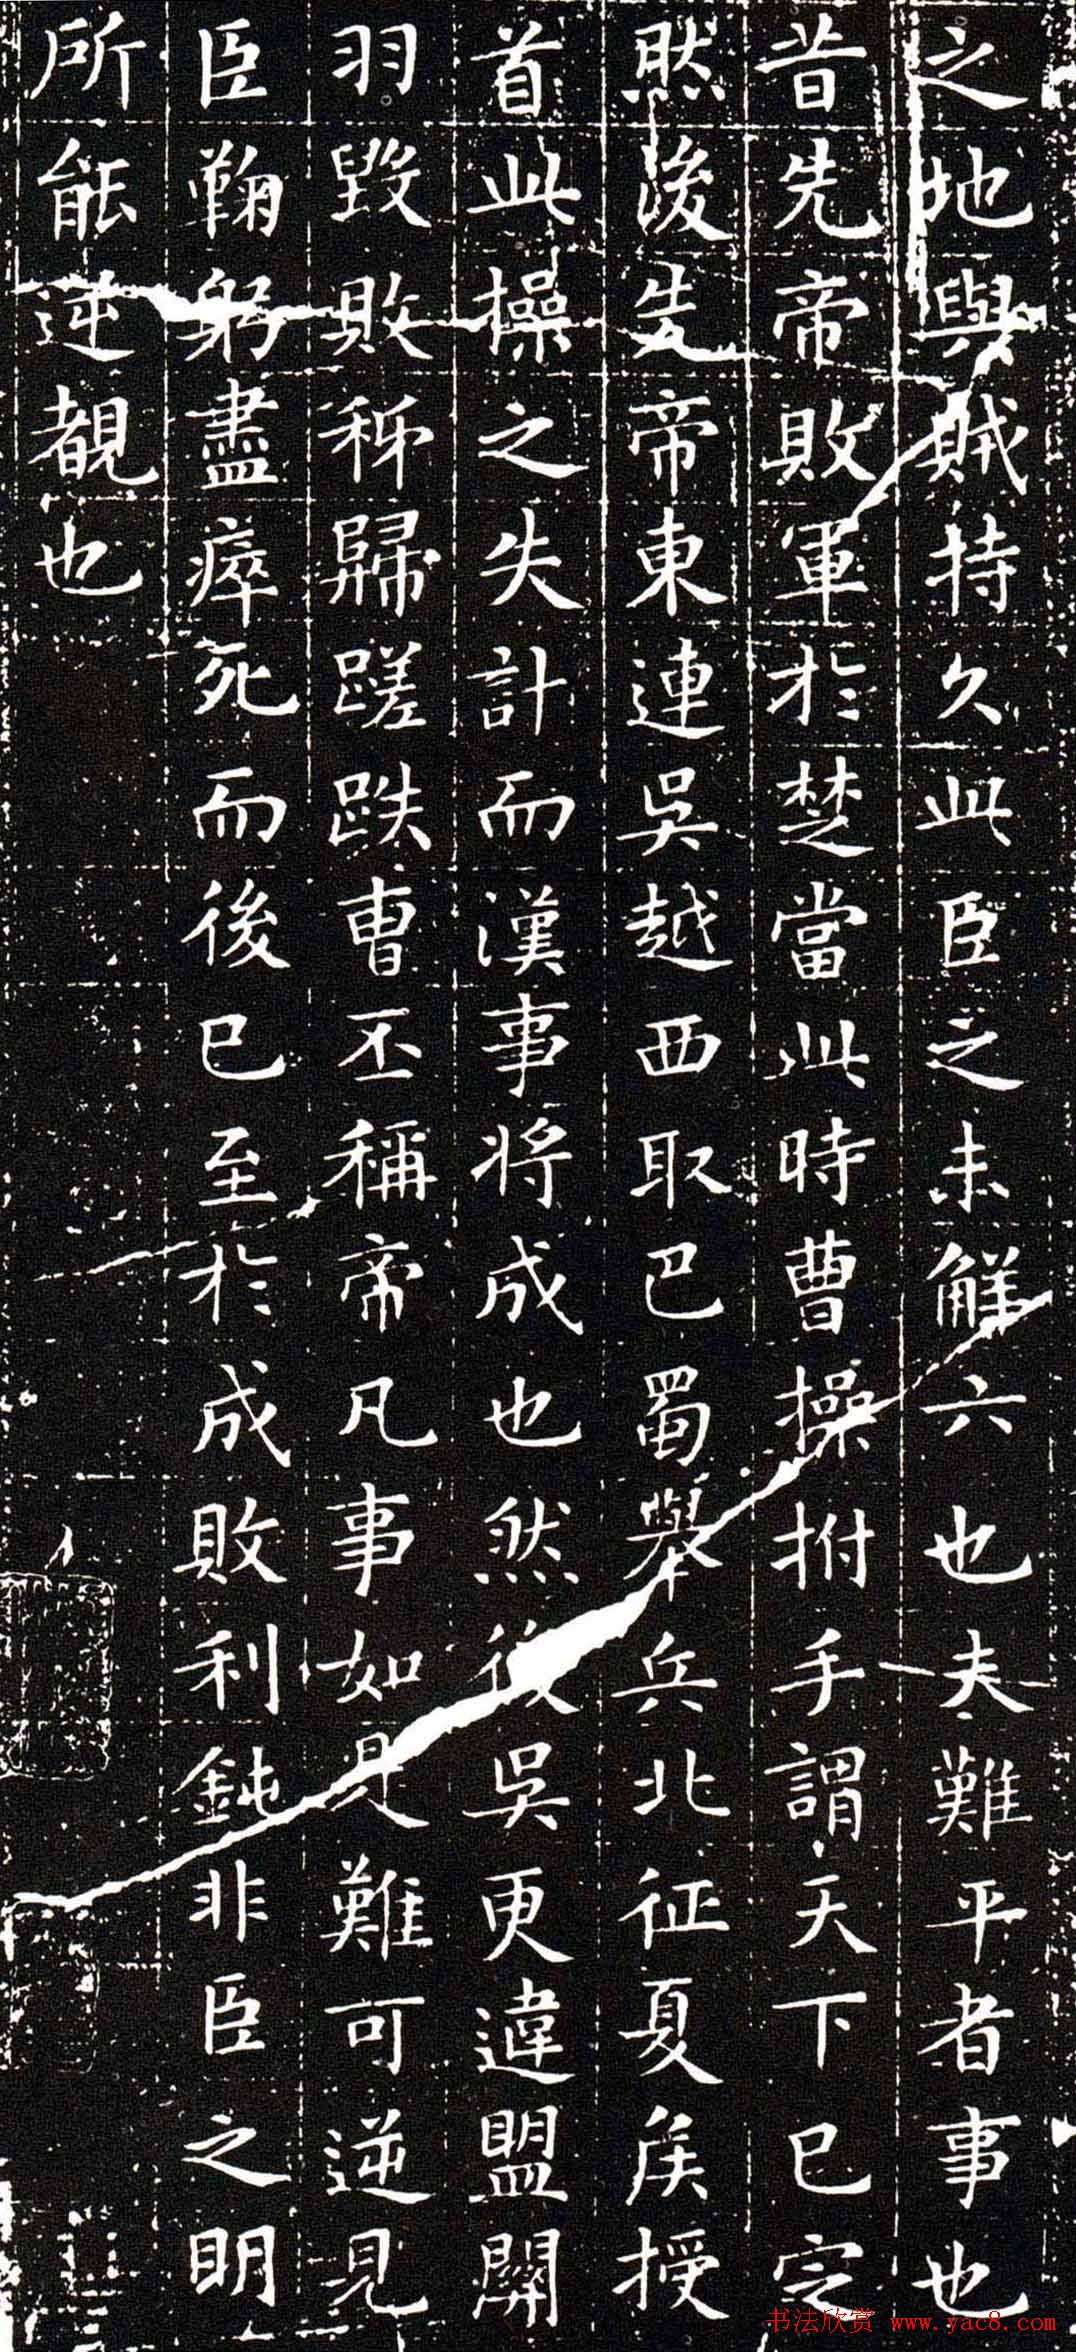 之地與賊持久此臣之未解六也夫難平者事也
昔先帝敗軍於楚當此時曹操拊手謂天下已定
然後先帝東連吳越西取巴蜀舉兵北征夏侯授
首此操之失計而漢事將成也然後吳更違盟關
羽毀敗秭歸蹉跌曹丕稱帝凡事如是難可逆見
臣鞠躬盡瘁死而後已至於成敗利鈍非臣之明
所能逆覩也
书法欣赏 www.yac8.com